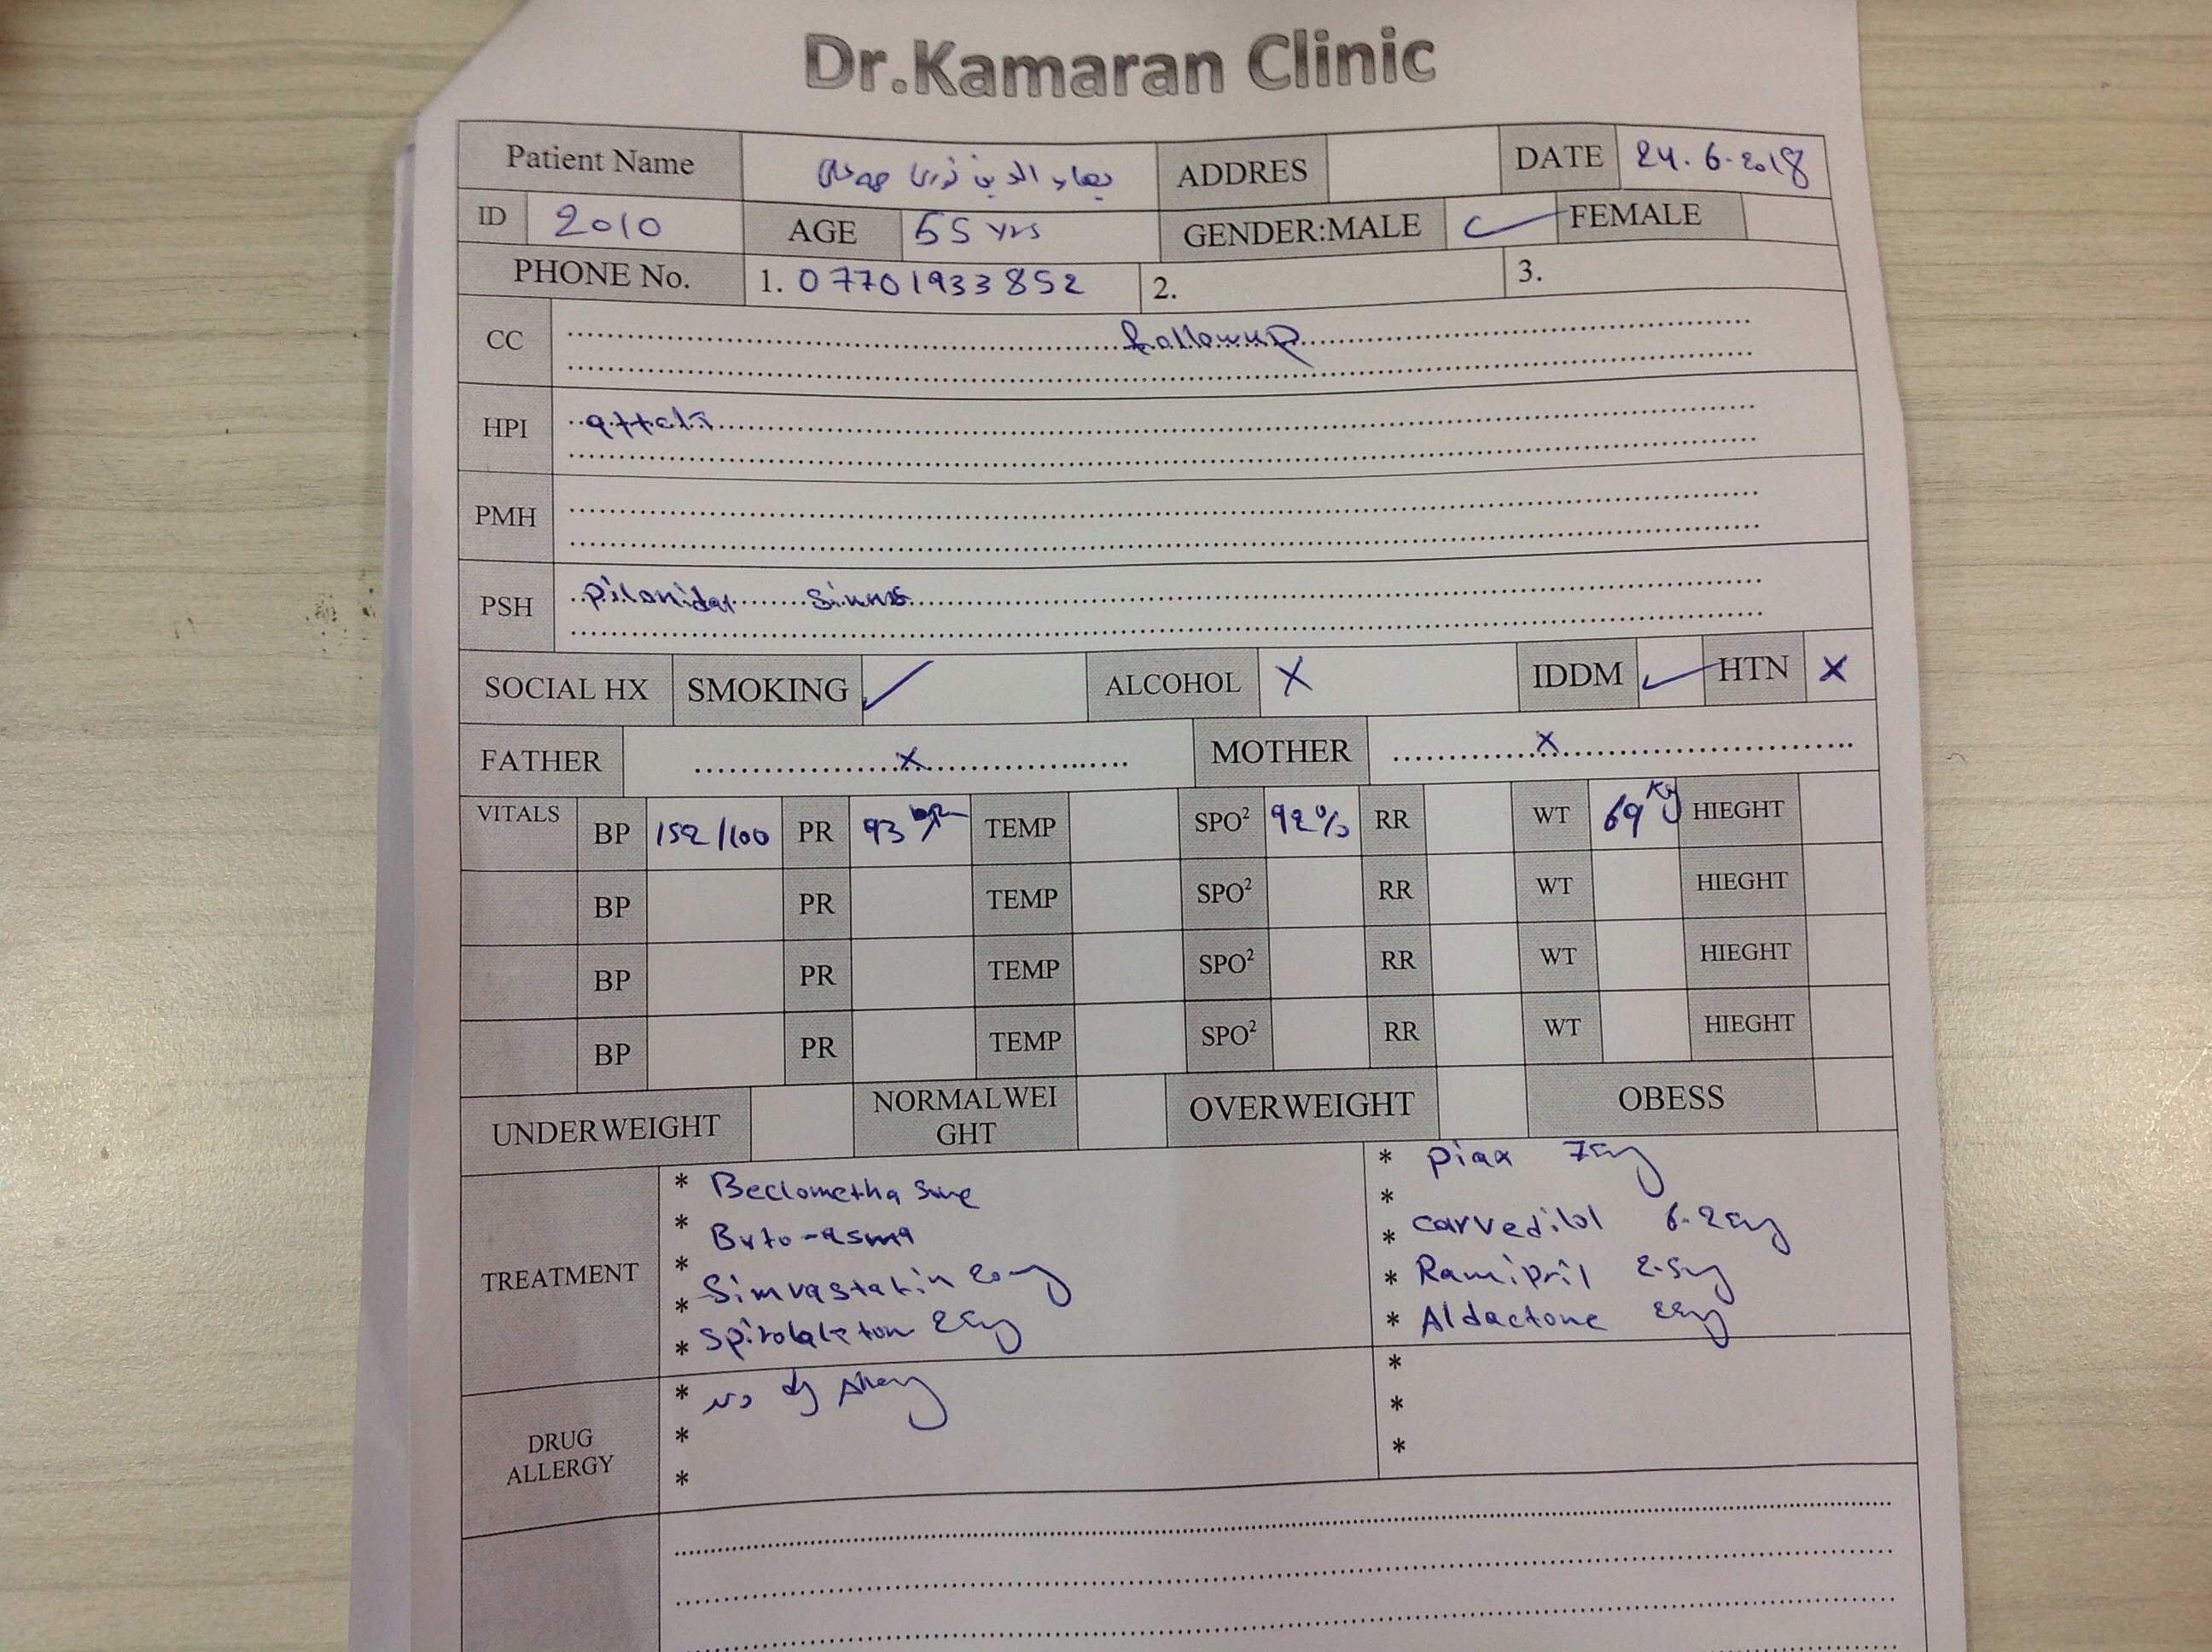 Dr.Kamaran Clinic
Patient Name بهاء الدين نوری ADDRES DATE 24.6.2018
ID 2010 AGE 55 yrs GENDER:MALE FEMALE
PHONE No. 1. 07701933852 2. 3.
CC followup
HPI
PMH
PSH Pilonidal Sinus
SOCIAL HX SMOKING ✓ ALCOHOL X IDDM ✓ HTN X
FATHER X MOTHER X
VITALS BP 152/100 PR 93 bpm TEMP SPO² 92% RR WT 69 Kg HIEGHT
BP PR TEMP SPO² RR WT HIEGHT
BP PR TEMP SPO² RR WT HIEGHT
BP PR TEMP SPO² RR WT HIEGHT
UNDERWEIGHT NORMALWEI
GHT OVERWEIGHT OBESS
TREATMENT
* Beclomethasone
* Buto-asma
* Simvastatin 20mg
* Spirolakton 25mg
*
* Piax 75mg
*
* Carvedilol 6.25mg
* Ramipril 2.5mg
* Aldactone 25mg
DRUG
ALLERGY
* No drug Allergy
*
*
*
*
*